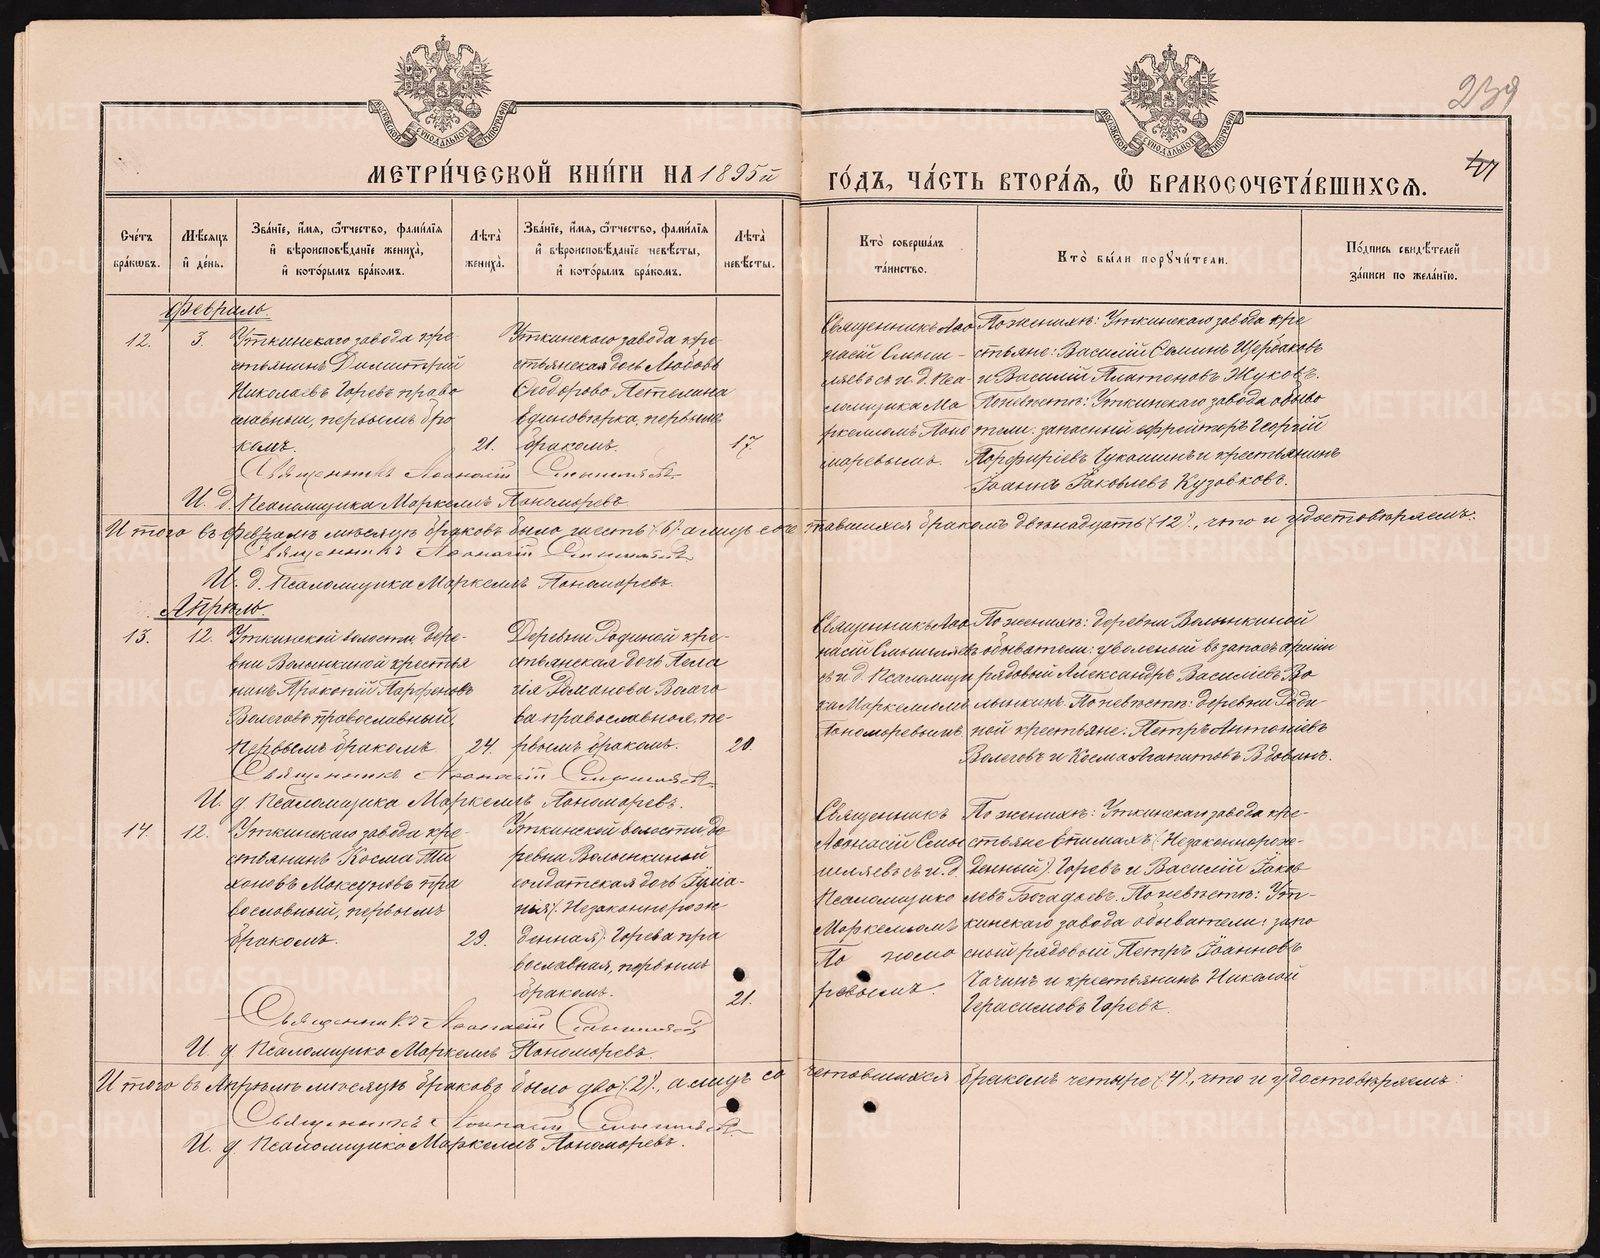 239
41
МЕТРИ́ЧЕСКОЙ КНИ́ГИ НА 1895й ГО́ДЪ, ЧА́СТЬ ВТОРА́Я, Ѽ БРАКОСОЧЕТА́ВШИХСЯ.
Сче́тъ бра́кѡвъ.
Мѣ́сяцъ и҆ де́нь.
Зва́нїе, и҆́мя, ѻ҆́тчество, фами́лїя и҆ вѣроисповѣ́данїе жениха̀, и҆ кото́рымъ бра́комъ.
Лѣ́та жениха̀.
Зва́нїе, и҆́мя, ѻ҆́тчество, фами́лїя и҆ вѣроисповѣ́данїе невѣ́сты, и҆ кото́рымъ бра́комъ.
Лѣ́та невѣ́сты.
Кто̀ соверша́лъ та́инство.
Кто̀ бы́ли порꙋчи́тели.
По́дпись свидѣ́телей за́писи по жела́нїю.
Февраль.
12.
3.
Уткинскаго завода кре-
стьянинъ Димитрий
Николаевъ Горевъ право
славный, первымъ бра
комъ.
21.
Уткинскаго завода кре-
стьянская дочь Любовь
Ѳеодорова Петелина
единовѣрка, первымъ
бракомъ.
17.
Священникъ Аѳа
насій Смыш-
ляевъ съ и. д. Пса-
ломщика Ма
ркелломъ Поно
маревымъ.
По женихѣ: Уткинскаго завода кре
стьяне: Василій Семинъ Щербаковъ
и Василій Платоновъ Жуковъ.
По невѣстѣ: Уткинскаго завода обыва
тели: запасный ефрейторъ Георгій
Порфиріевъ Чукашинъ и крестьянинъ
Іоаннъ Іаковлевъ Кузовковъ.
Священникъ Аѳанасій Смышляевъ
И. д. Псаломщика Маркеллъ Пономаревъ
Итого въ Февралѣ мѣсяцѣ браковъ было шесть (6), а лицъ соче тавшихся бракомъ двѣнадцать (12), что и удостовѣряемъ:
Священникъ Аѳанасій Смышляевъ
И. д. Псаломщика Маркеллъ Пономаревъ.
Апрѣль.
13.
12.
Уткинской волости, дере-
вни Волынкиной крестья
нинъ Прокопій Парфеновъ
Волеговъ православный,
первымъ бракомъ.
24.
Деревни Родиной кре-
стьянская дочь Пела
гія Романова Волего
ва православная, пе-
рвымъ бракомъ.
20.
Священникъ Аѳа
насій Смышляевъ
съ и. д. Псаломщи
ка Маркелломъ
Пономаревымъ.
По женихѣ: деревни Волынкиной
обыватели: уволеный въ запасъ арміи
рядовый Александръ Василіевъ Во
лынкинъ. По невѣстѣ: деревни Роди
ной крестьяне: Петръ Антоніевъ
Волеговъ и Косма Агапитовъ Вдовинъ.
Священникъ Аѳанасій Смышляевъ
И. д. Псаломщика Маркеллъ Пономаревъ.
14.
12.
Уткинскаго завода кре-
стьянинъ Косма Ти
хоновъ Максуновъ пра
вославный, первымъ
бракомъ.
29.
Уткинской волости, де
ревни Волынкиной
солдатская дочь Іуліа-
нія (Незаконнорож
денная) Горева пра
вославная, первымъ
бракомъ.
21.
Священникъ
Аѳанасій Смы
шляевъ съ и. д.
Псаломщика
Маркелломъ
По номо
ревымъ.
По женихѣ: Уткинскаго завода кре-
стьяне Евтимахъ (Незаконнорож-
денный) Горевъ и Василій Іаков
левъ Богадаевъ. По невѣстѣ: Ут-
кинскаго завода обыватели: запа
сной рядовый Петръ Іоанновъ
Чачинъ и крестьянинъ Николай
Герасимовъ Горевъ.
Священникъ Аѳанасій Смышляевъ
И. д. Псаломщика Маркеллъ Пономаревъ.
Итого въ Апрѣлѣ мѣсяцѣ браковъ было два (2), а лицъ со четавшихся бракомъ четыре (4), что и удостовѣряемъ:
Священникъ Аѳанасій Смышляевъ
И. д. Псаломщика Маркеллъ Пономаревъ.
METRIKI.GASO-URAL.RU